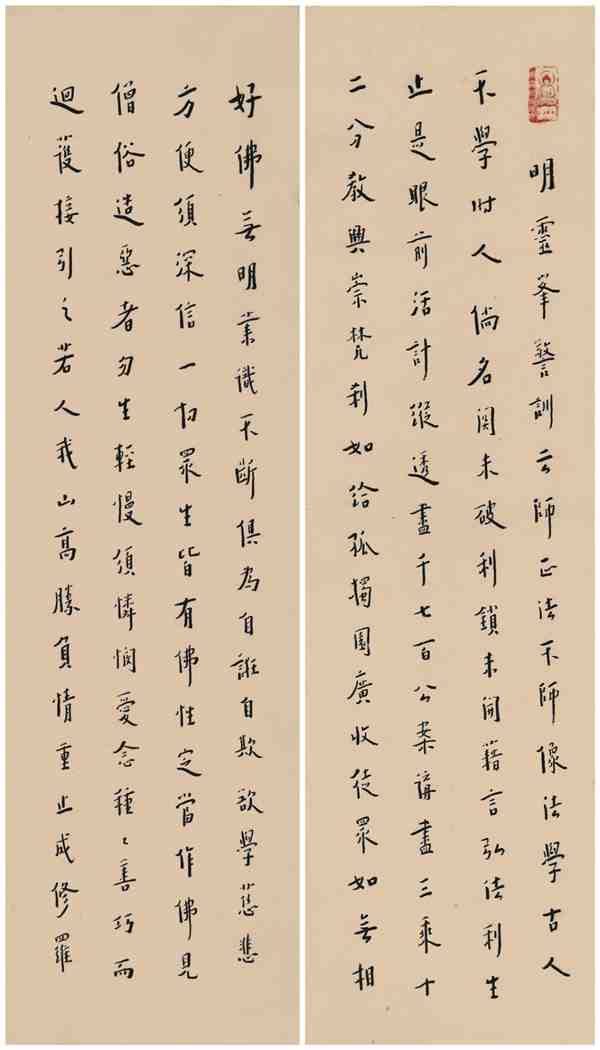 明靈峯警訓云師正法不師像法學古人
不學時人倘名関未破利鎖未開藉言弘法利生
止是眼前活計縱透盡千七百公案講盡三乘十
二分教興崇梵剎如給孤獨園廣收徒眾如無相
好佛無明業識不斷俱為自誑自欺欲學慈悲
方便須深信一切眾生皆有佛性定當作佛見
僧俗造惡者勿生輕慢須憐憫愛念種種善巧而
迴護接引之若人我山高勝負情重止成修羅